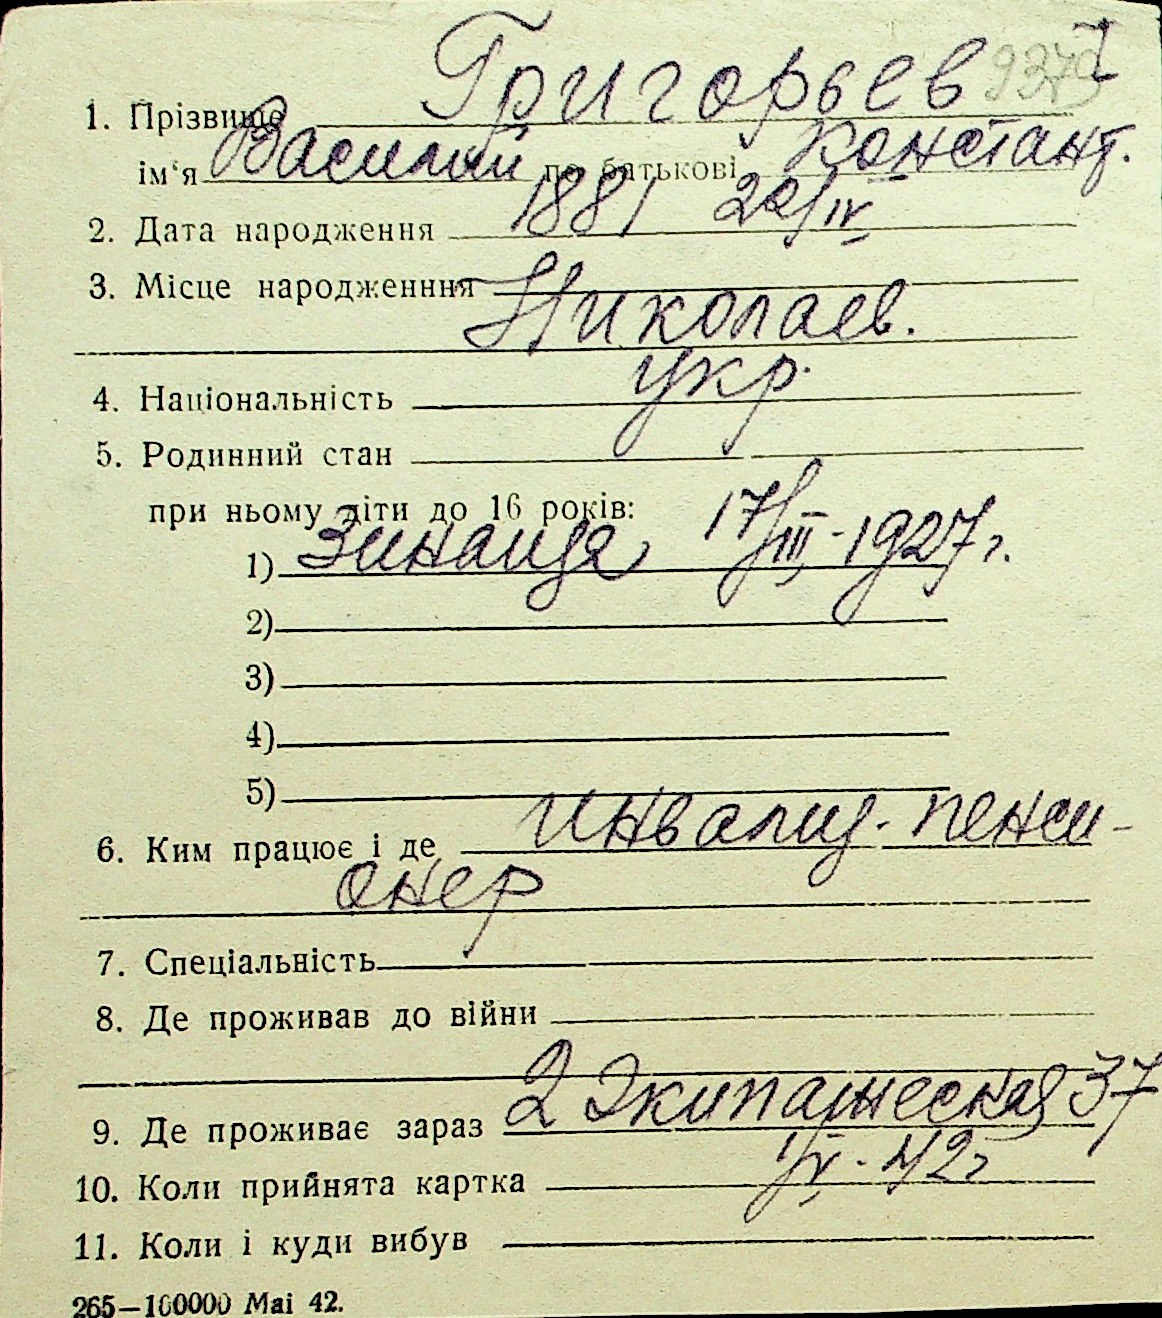 1. Прізвище Григорьев 9379
ім‘я Василий по батькові Констант.
2. Дата народження 1881 20/IV
3. Місце народженння Николаев.
4. Національність укр.
5. Родинний стан
при ньому діти до 16 років:
1) Зинаида 17/III - 1927 г.
2)
3)
4)
5)
6. Ким працює і де инвалид. пенси-
онер
7. Спеціальність
8. Де проживав до війни
9. Де проживає зараз 2 Экипажеская 37
10. Коли прийнята картка 1/V - 42 г
11. Коли і куди вибув
265—100000 Mai 42.